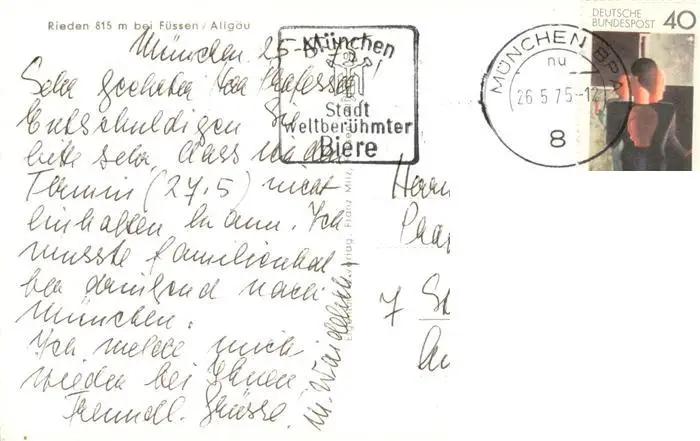 Rieden 815 m bei Füssen / Allgäu
München 25-5-75
Sehr geehrter Herr Professor
Entschuldigen Sie
bitte sehr, dass ich den
Termin (27.5) nicht
einhalten kann. Ich
musste familienhal
ber dringend nach
München.
Ich melde mich
wieder bei Ihnen
Freundl. Grüsse!
München
Stadt
weltberühmter
Biere
MÜNCHEN BPA
nu
26.5.75-12
8
DEUTSCHE
BUNDESPOST 40
Franz Milz,
Herrn
7 St